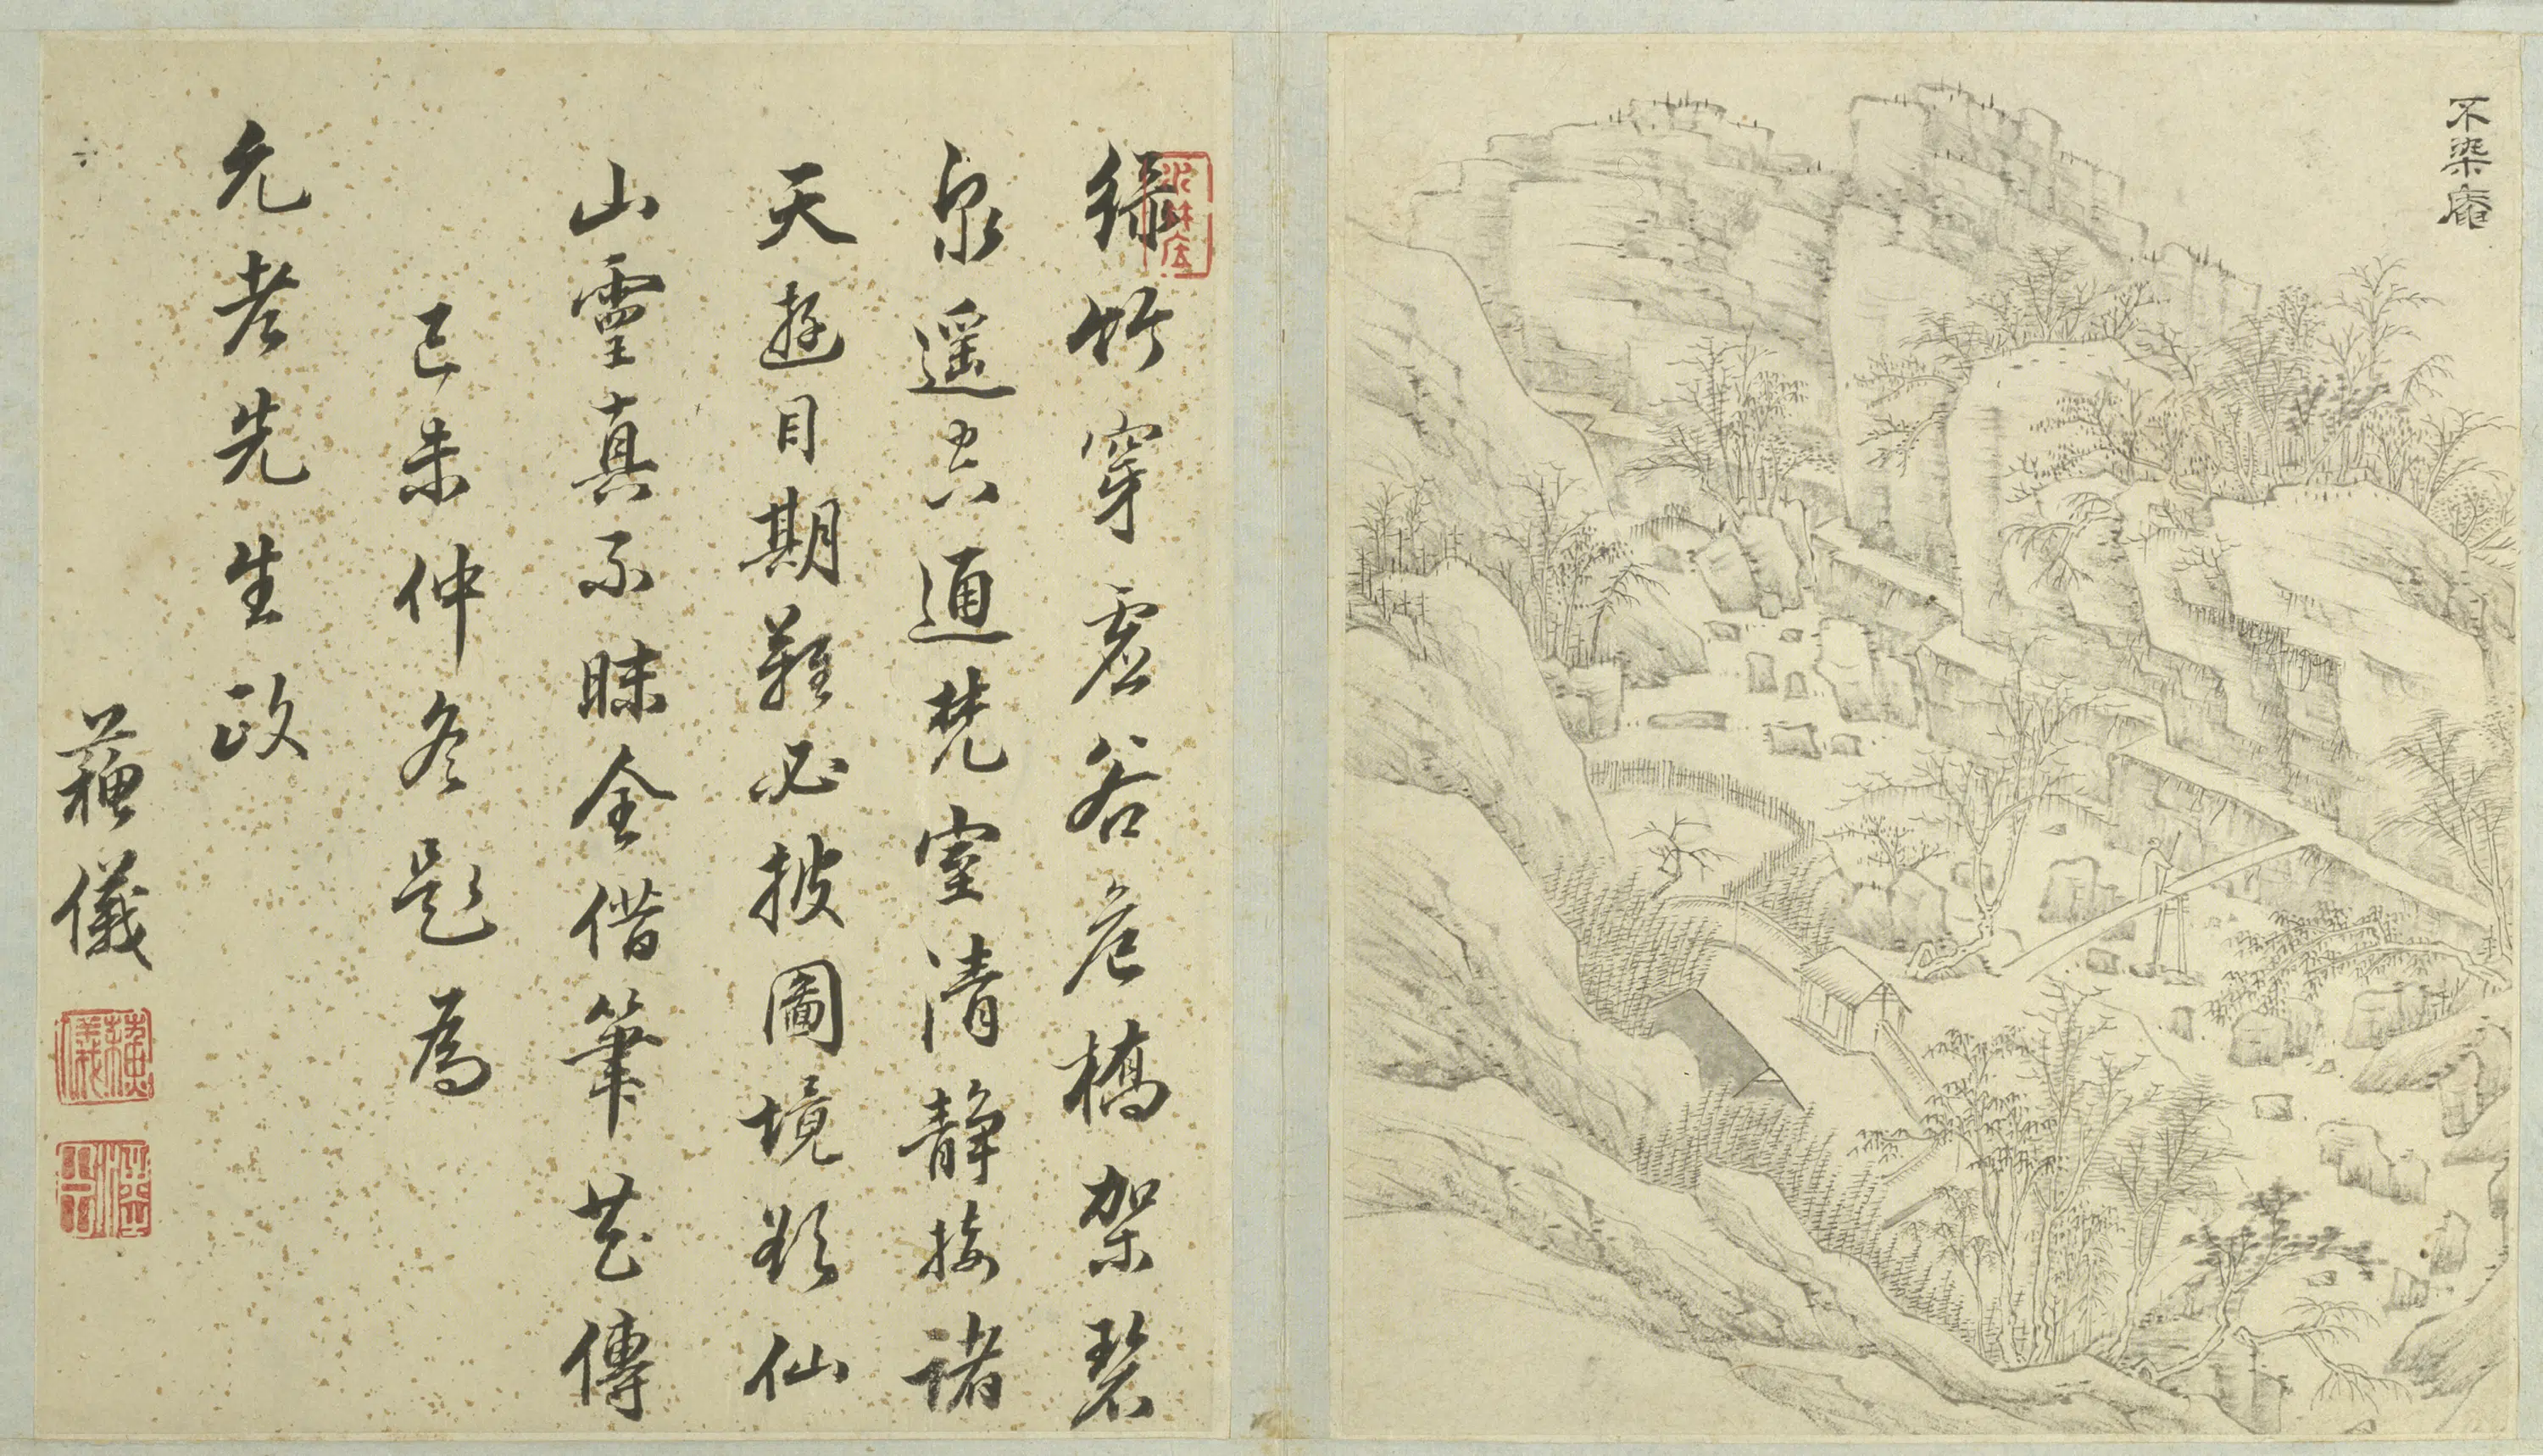 不染庵
綠竹穿虛谷危橋架碧
泉遥六通梵室清静接諸
天遊目期難必披圖境欵仙
山靈真不昧全借筆花傳
己未仲冬題為
允老先生政
蘓儀